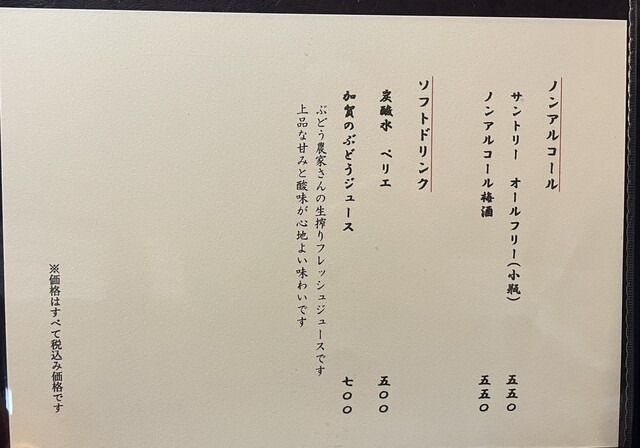 ノンアルコール
サントリー　オールフリー(小瓶)　五五〇
ノンアルコール梅酒　五五〇
ソフトドリンク
炭酸水　ペリエ　五〇〇
加賀のぶどうジュース　七〇〇
ぶどう農家さんの生搾りフレッシュジュースです
上品な甘みと酸味が心地よい味わいです
※価格はすべて税込み価格です